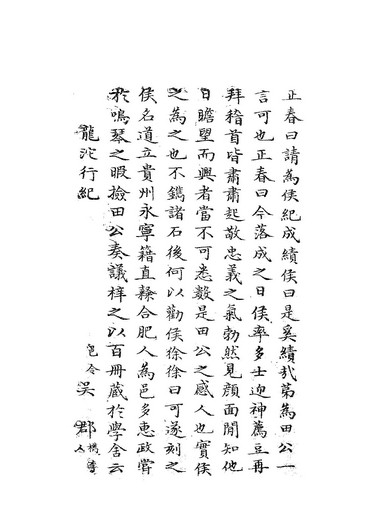 正春曰請為侯紀成績侯曰是奚績哉第為田公一
言可也正春曰今落成之日侯率多士迎神薦豆再
拜稽首皆肅肅起敬忠義之氣勃然見顏面間知他
日瞻望而興者當不可悉數是田公之感人也實侯
之為之也不鐫諸石後何以勸侯徐徐曰可遂刻之
侯名道立貴州永寧籍直隸合肥人為邑多惠政嘗
於鳴琴之暇撿田公奏議梓之以百冊藏於學舍云
龍沱行紀
邑令吳郡